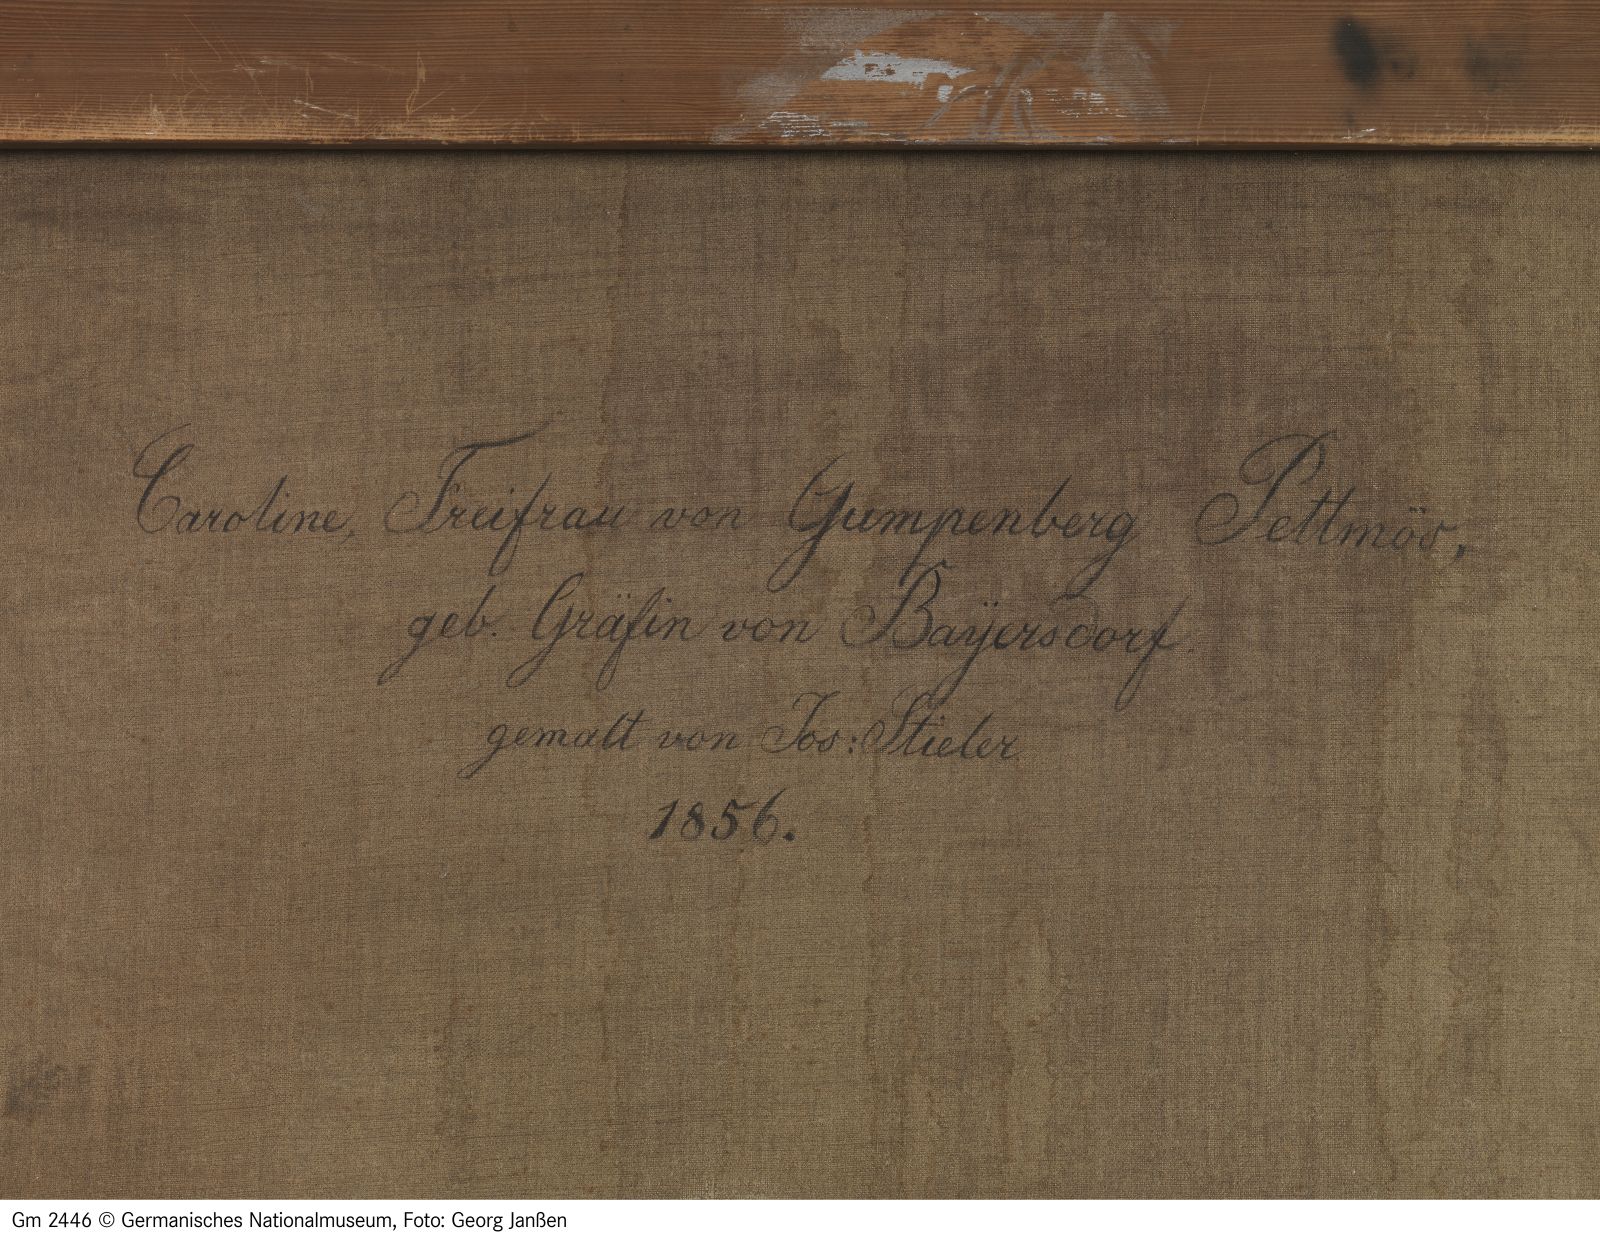 Caroline, Freifrau von Gumpenberg Pettmös,
geb. Gräfin von Baÿersdorf.
gemalt von Jos: Stieler
1856.
Gm 2446 © Germanisches Nationalmuseum, Foto: Georg Janßen